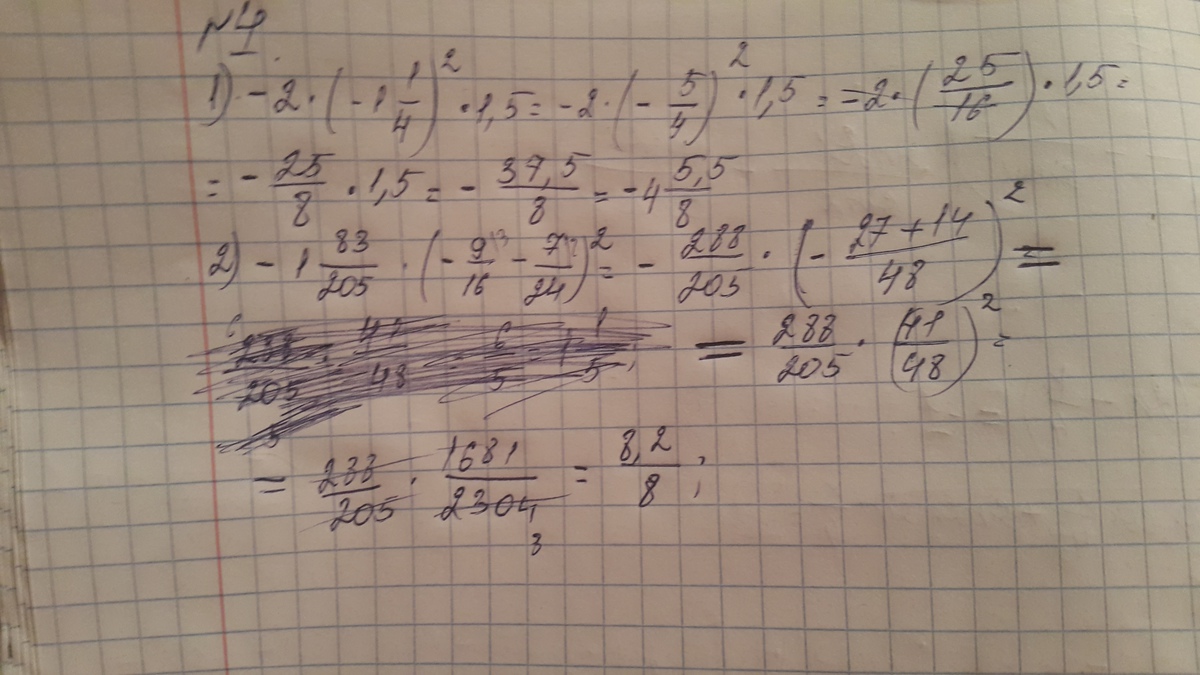 №4
1) -2·(-1 1/4)²·1,5 = -2·(-5/4)²·1,5 = -2·(25/16)·1,5 =
= -25/8·1,5 = -37,5/8 = -4 5,5/8
2) -1 83/205·(-9/16 - 7/24)² = -288/205·(-27+14/48)² =
= 288/205·(41/48)² =
= 288/205·1681/2304 = 8,2/8;
8